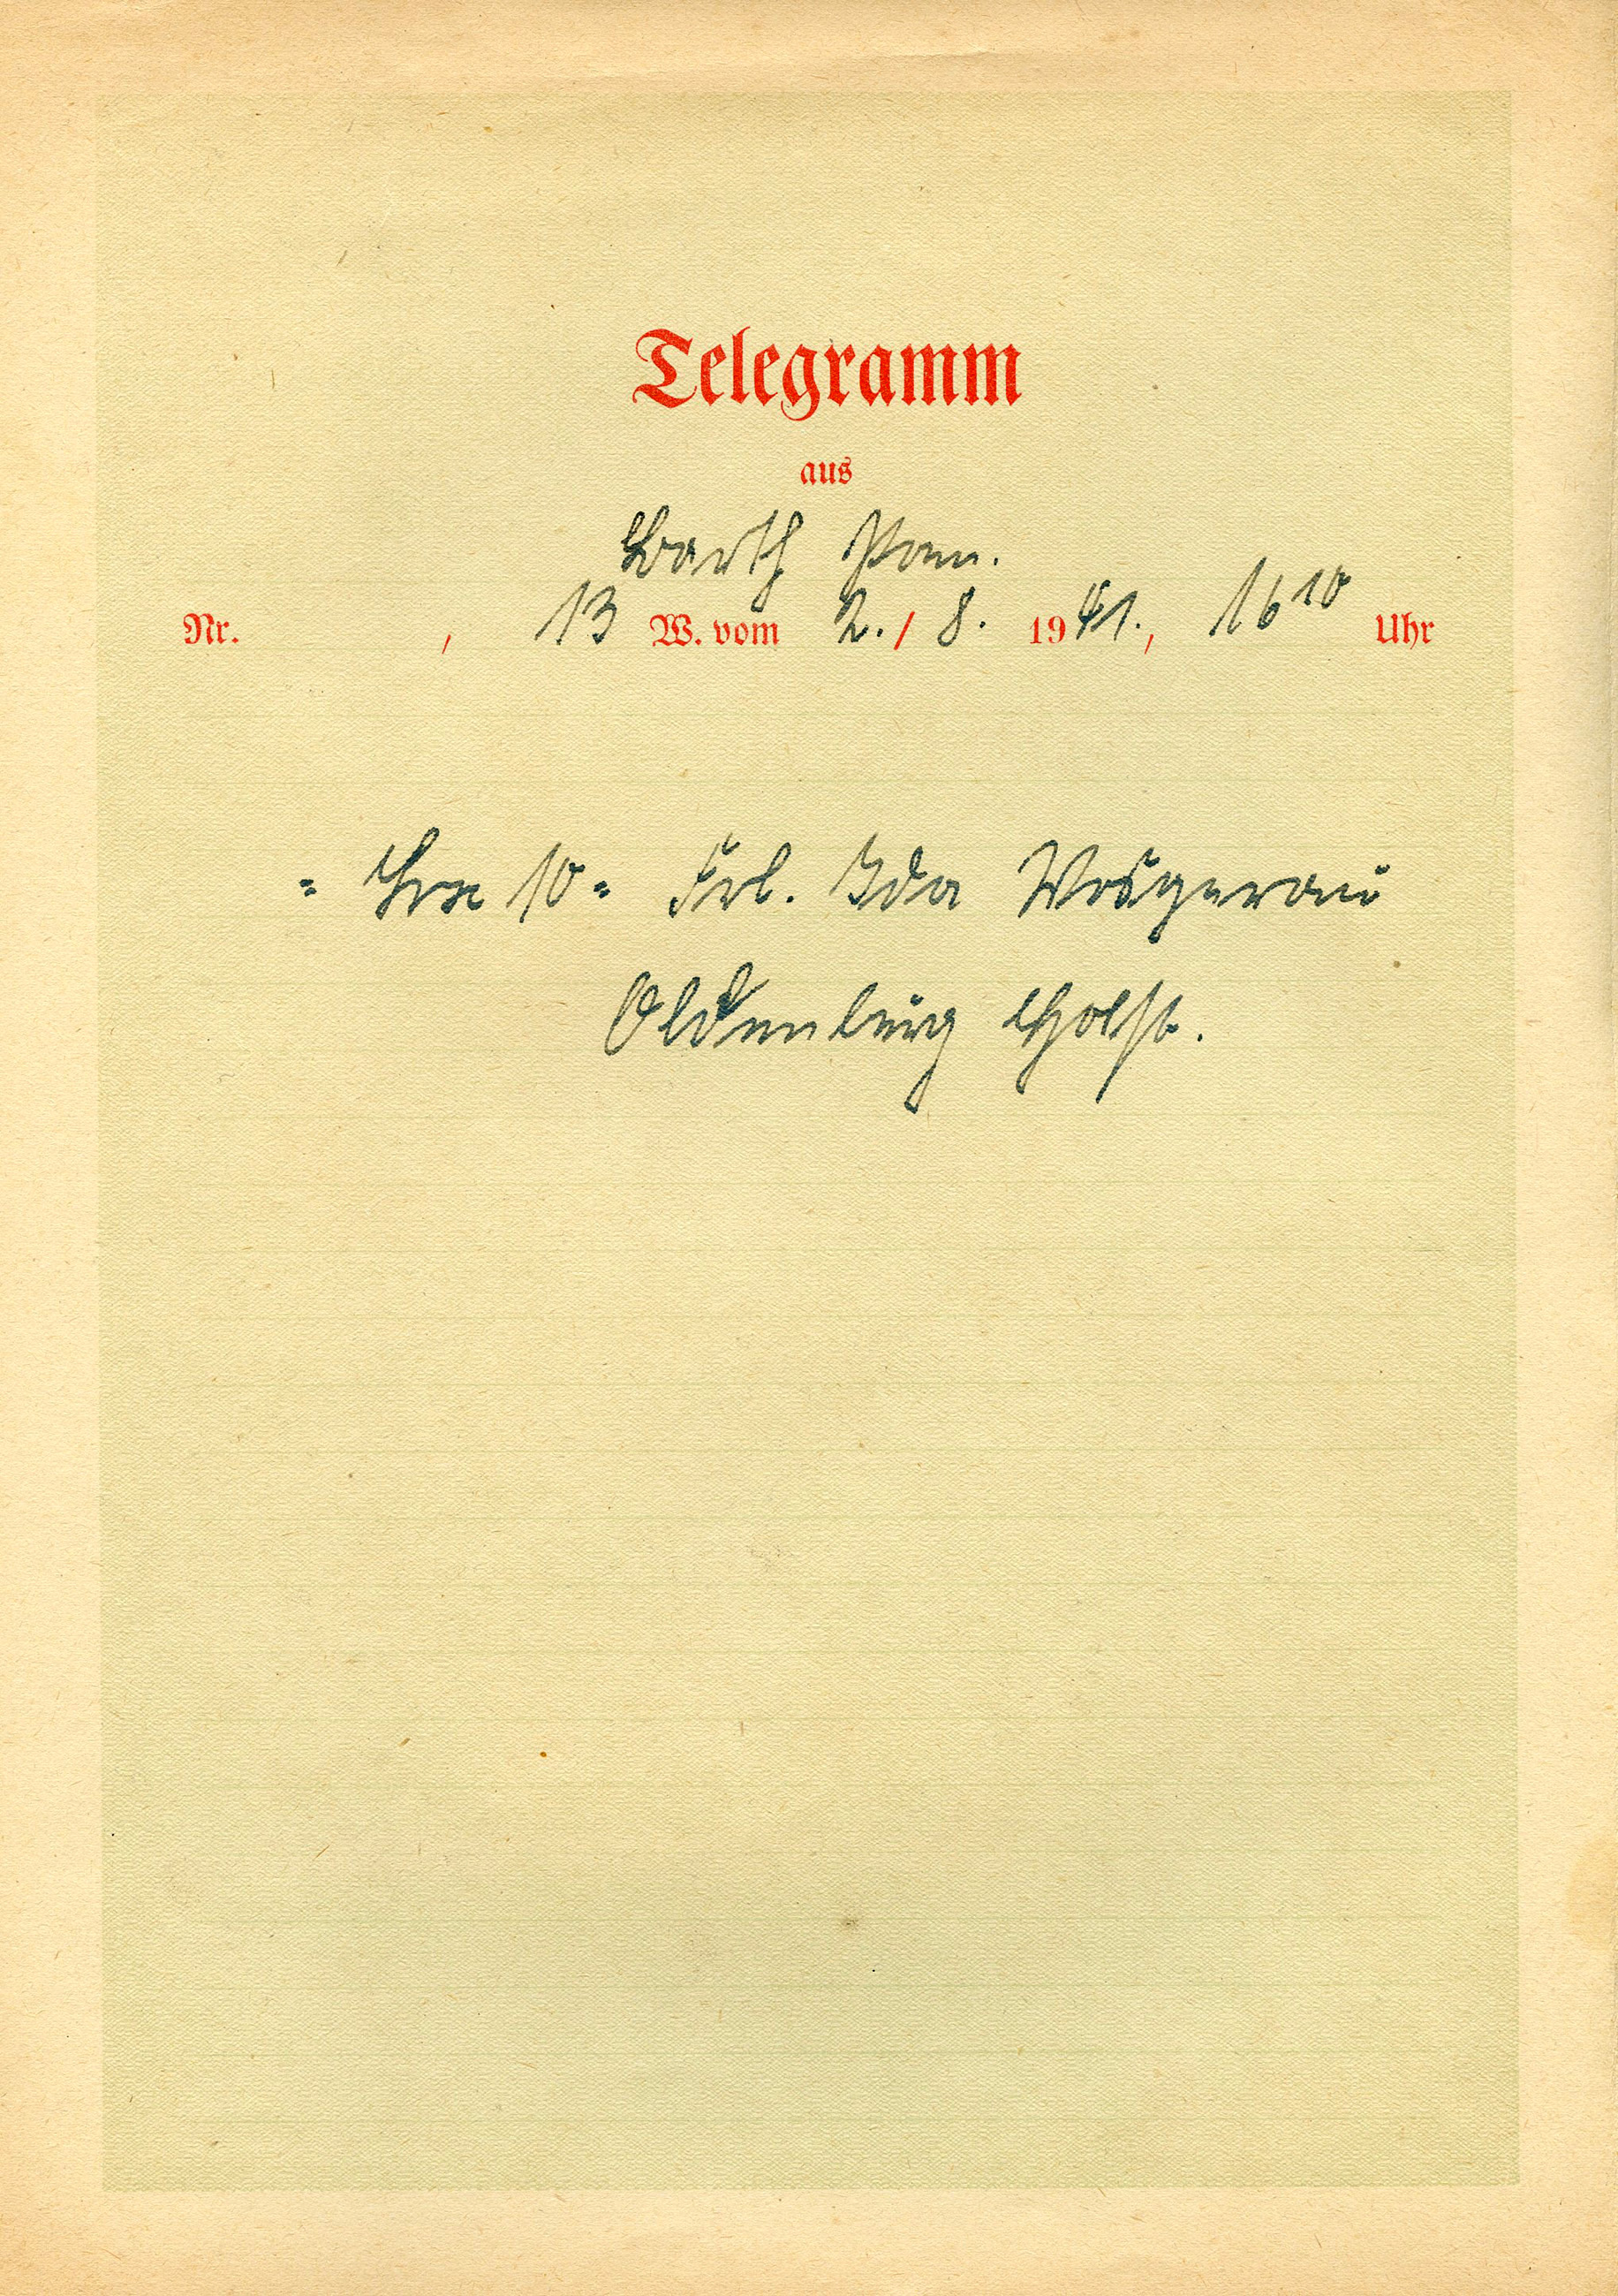 Telegramm
aus
Barth Pom.
Nr. , 13 W. vom 2. / 8. 1941., 16 10 Uhr
= Lxx 10 = Frl. Ida Wrügerau
Oldenburg Holst.